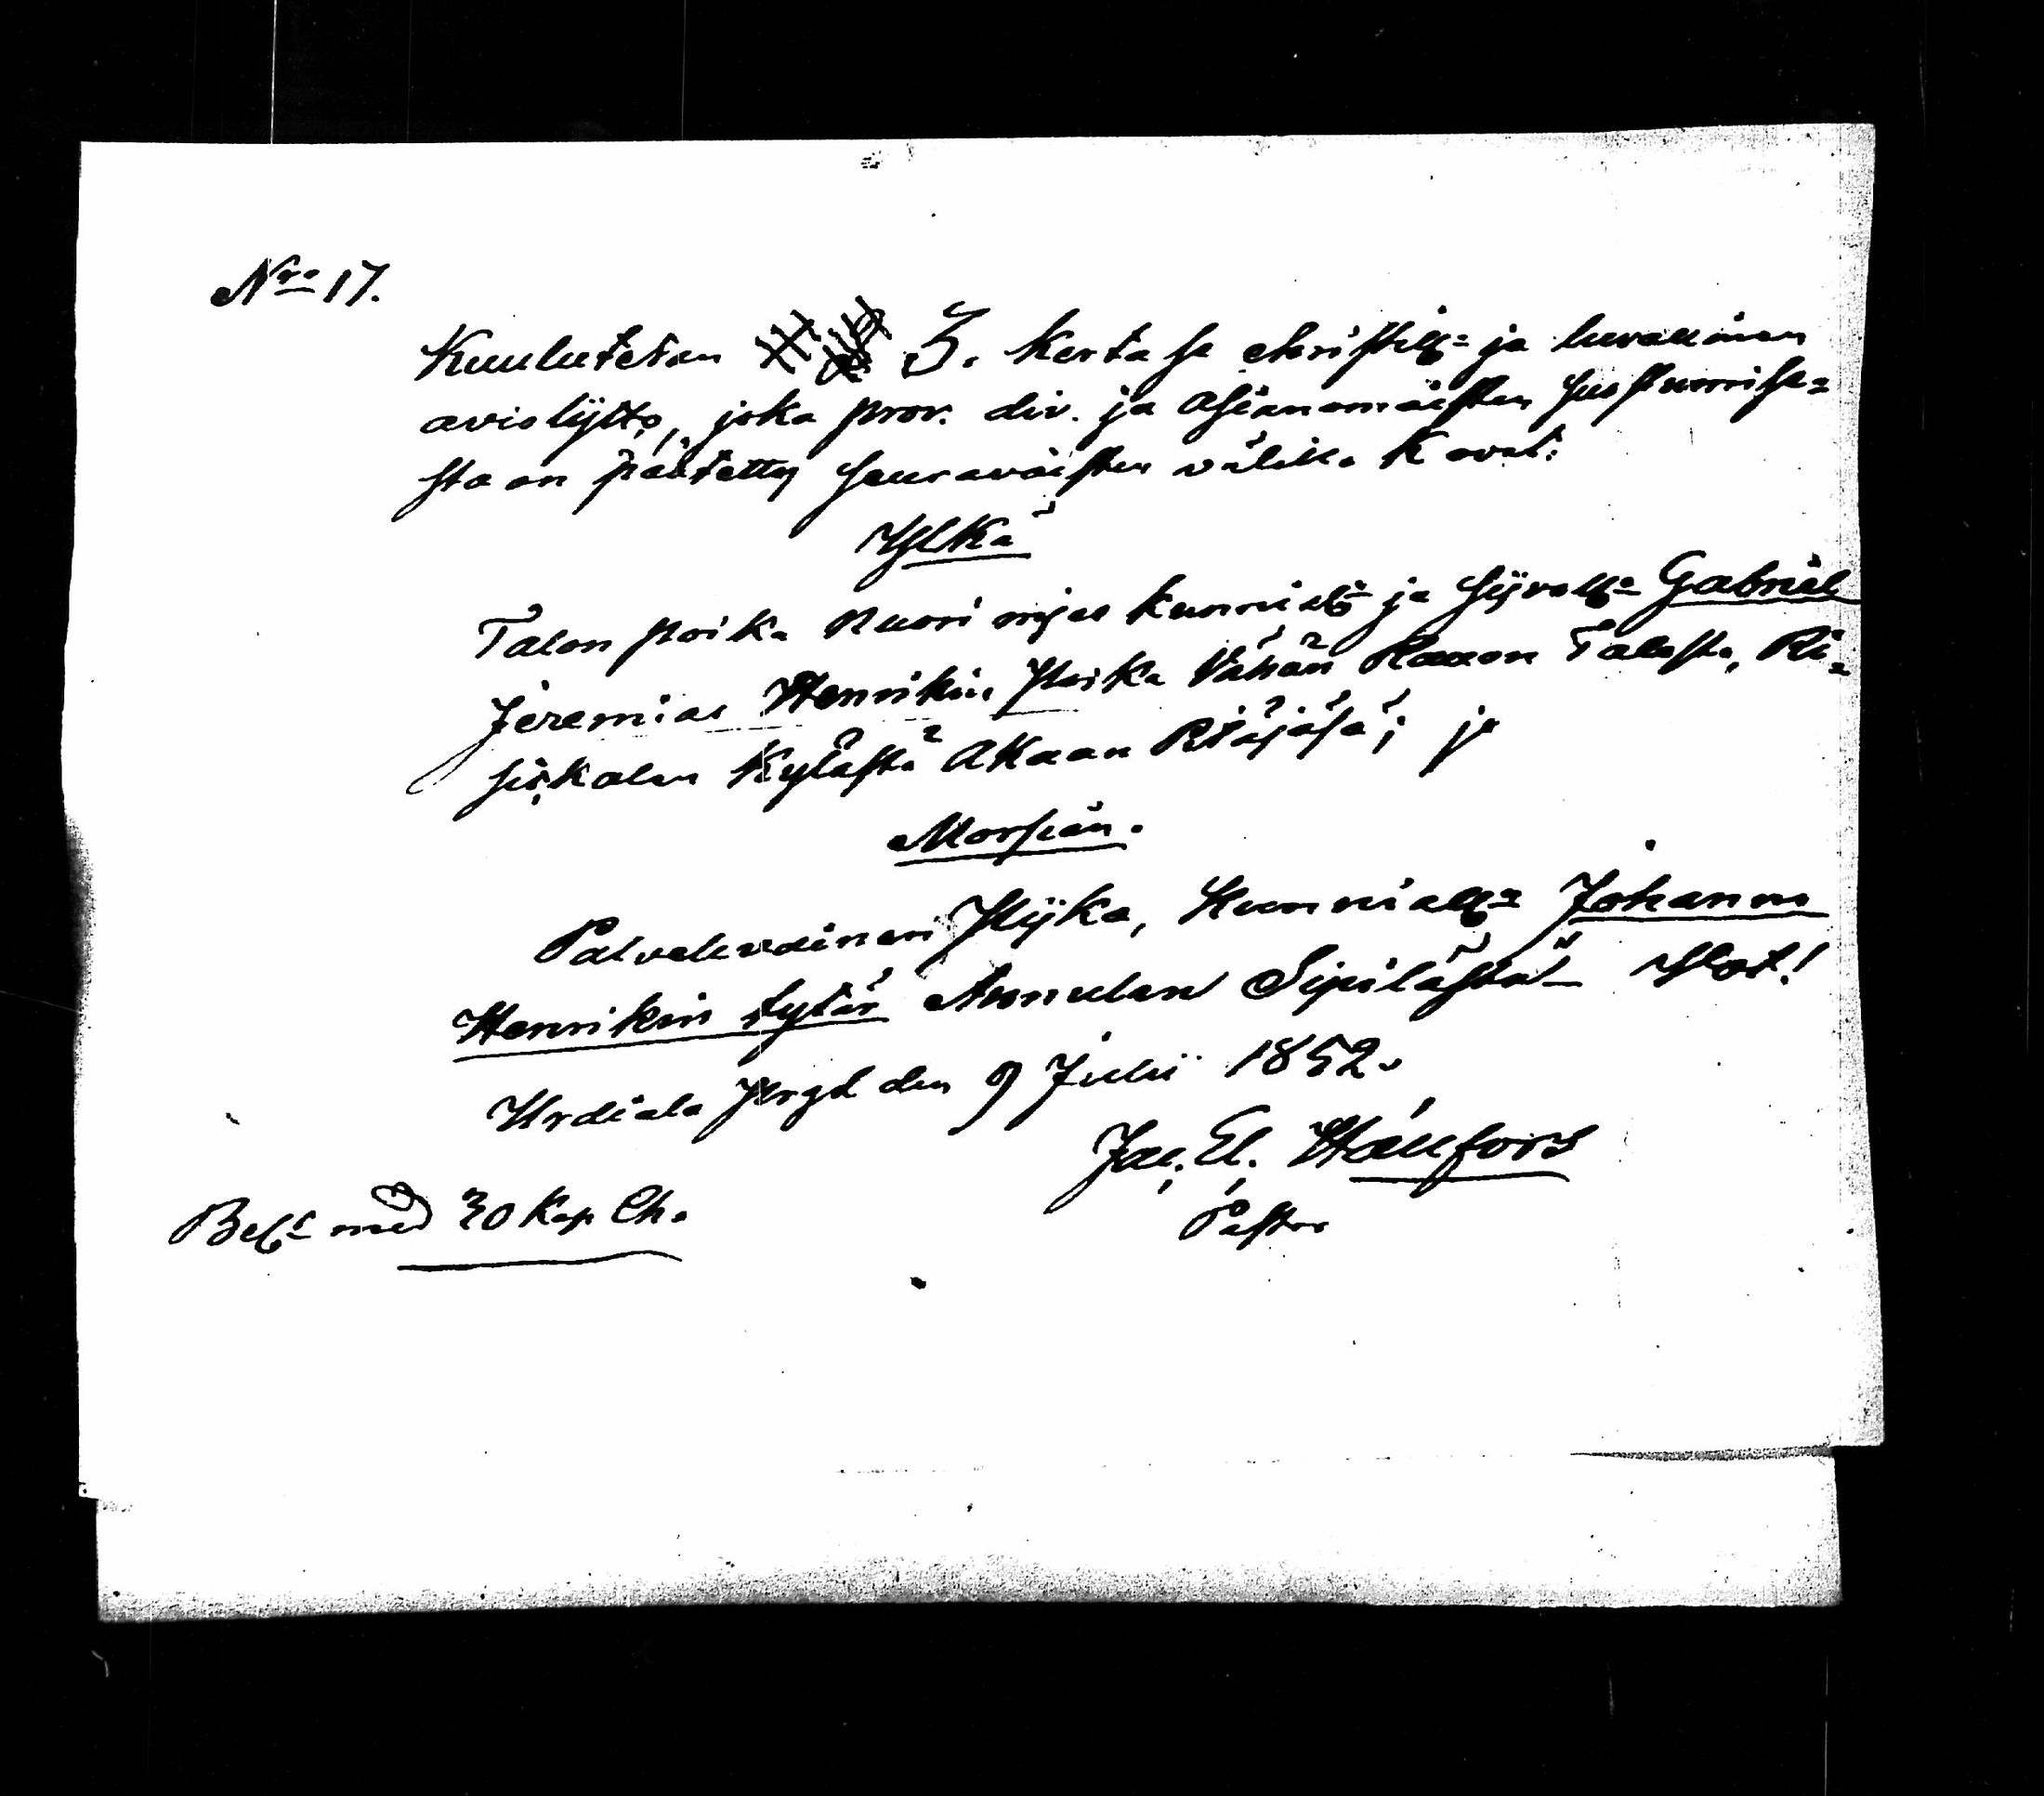 Nro 17.
Kuulutetan 3. kertasa christill= ja luvallinen
avioliitto, joka prov. div. ja asianomaisten suostumisesta=
sta on päätetty seuraavaisten välillä K ovat:
Ylkä
Talon poika nuori mies kunniall= ja siivoll= Gabriel
Jeremias Henrikin Poika Vähän Raxon Talosta, Ri=
siskalan Kylästä Akaan Pitäjäsä; ja
Morsian.
Palvelevainen Piika, Kunniall= Johanna
Henrikin tytär Annulan Sipilästä
Urdiala Prgd den 9 Julii 1852.
Jac. El. Hällfors
Pastor
Bet. med 30 Kop Ch.